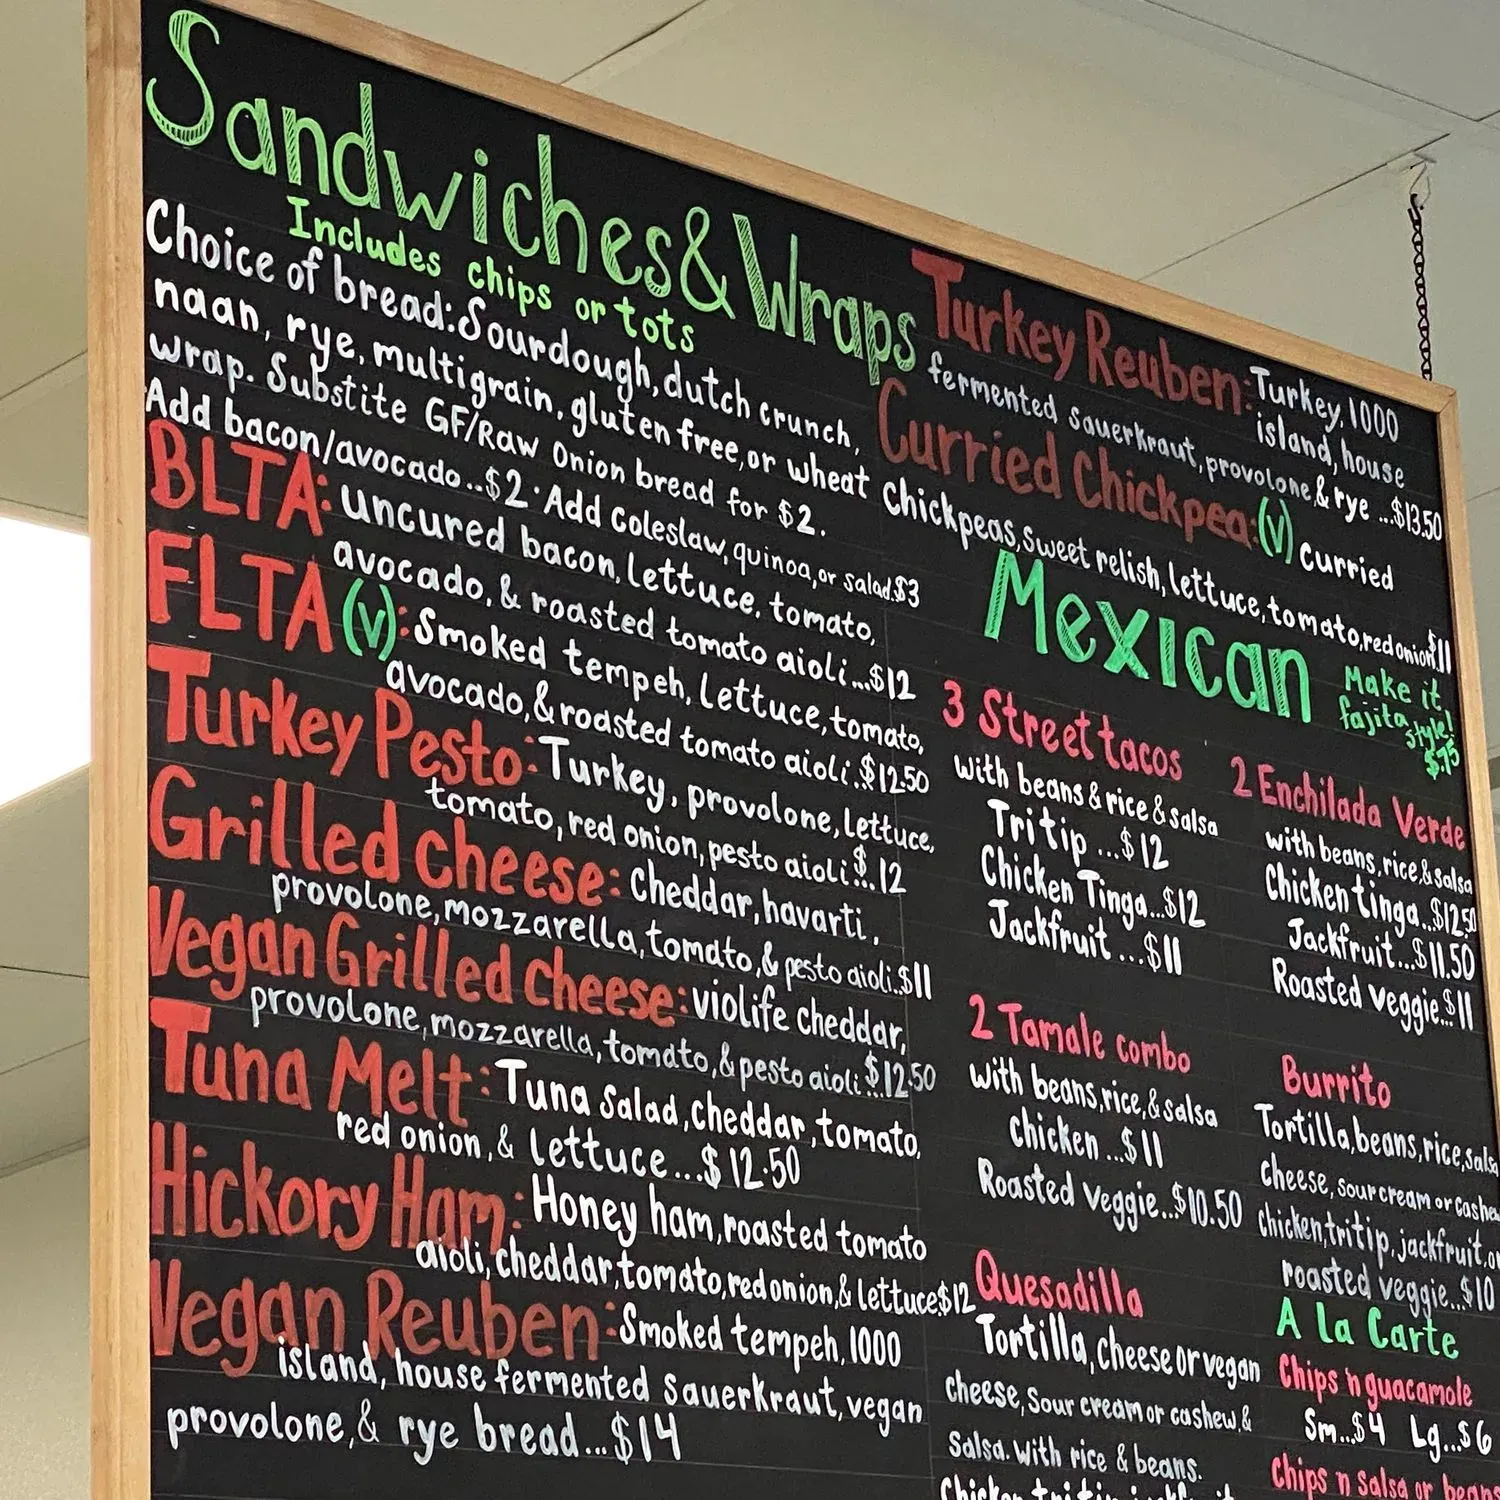 Sandwiches & Wraps
Includes chips or tots
Choice of bread: Sourdough, dutch crunch,
naan, rye, multigrain, gluten free, or wheat
wrap. Substite GF/Raw Onion bread for $2.
Add bacon/avocado..$2 · Add coleslaw, quinoa, or salad.$3
BLTA: uncured bacon, lettuce, tomato,
avocado, & roasted tomato aioli...$12
FLTA (v): Smoked tempeh, lettuce, tomato,
avocado, & roasted tomato aioli.$12.50
Turkey Pesto: Turkey, provolone, lettuce,
tomato, red onion, pesto aioli $...12
Grilled cheese: Cheddar, havarti,
provolone, mozzarella, tomato, & pesto aioli..$11
Vegan Grilled cheese: violife cheddar,
provolone, mozzarella, tomato, & pesto aioli $...12.50
Tuna Melt: Tuna Salad, cheddar, tomato,
red onion, & lettuce...$12.50
Hickory Ham: Honey ham, roasted tomato
aioli, cheddar, tomato, red onion, & lettuce $12
Vegan Reuben: Smoked tempeh, 1000
island, house fermented sauerkraut, vegan
provolone, & rye bread...$14
Turkey Reuben: Turkey, 1000
island, house
fermented sauerkraut, provolone, & rye ...$13.50
Curried Chickpea: (v) Curried
Chickpeas, sweet relish, lettuce, tomato, red onion.$11
Mexican
Make it
fajita
style!
$.75
3 Street tacos
with beans & rice & salsa
Tri tip ...$12
Chicken Tinga...$12
Jackfruit ...$11
2 Enchilada Verde
with beans, rice, & salsa
Chicken tinga..$12.50
Jackfruit...$11.50
Roasted veggie..$11
2 Tamale combo
with beans, rice, & salsa
chicken ...$11
Roasted Veggie...$10.50
Burrito
Tortilla, beans, rice, salsa
cheese, sour cream or cashew
chicken, tri tip, jackfruit, or
roasted veggie...$10
Quesadilla
Tortilla, cheese or vegan
cheese, sour cream or cashew, &
salsa. with rice & beans.
Chicken, tri tip, jackfruit
A La Carte
Chips 'n guacamole
Sm...$4 Lg...$6
Chips n salsa or beans